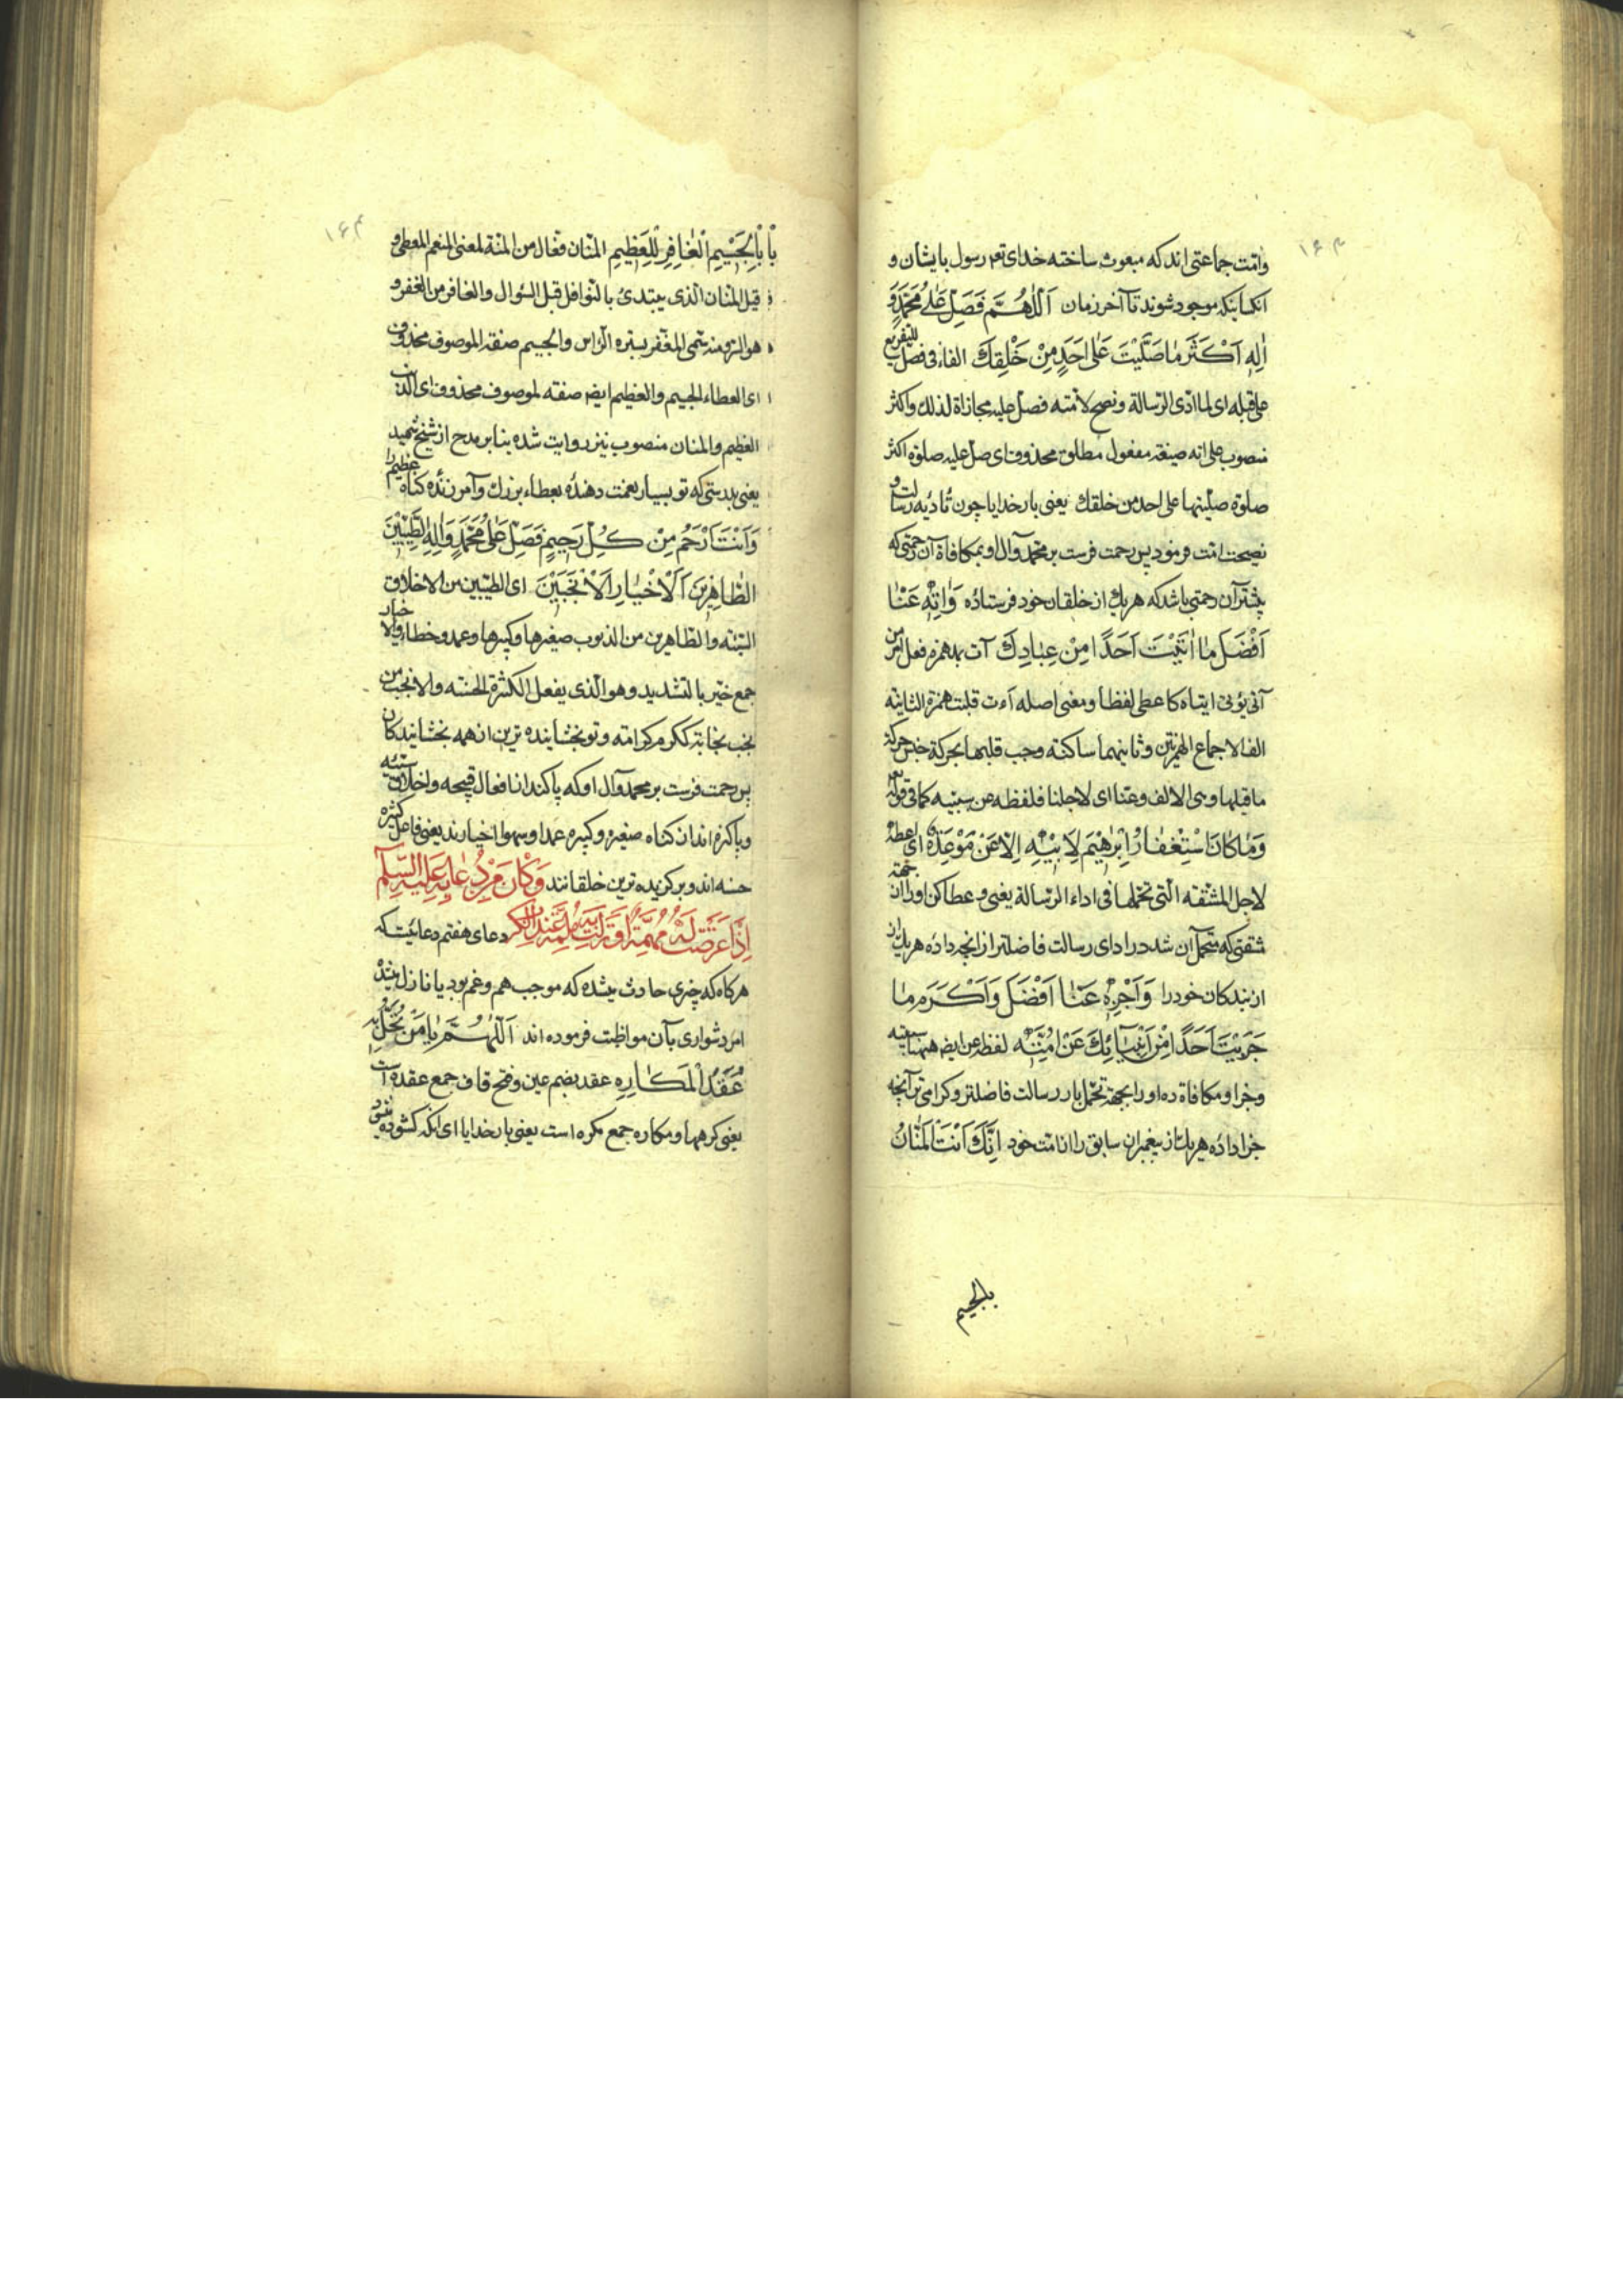 ۱۶۳
وامت جماعتی اند که مبعوث ساخته خدای تعم رسول بایشان و
انکسانیکه موجود شوند تا آخر زمان اَللّٰهُمَّ فَصَلِّ عَلٰی مُحَمَّدٍ وَ
اٰلِهِ اَکْثَرَ مٰا صَلَّیْتَ عَلٰی اَحَدٍ مِنْ خَلْقِكَ الفاء فی فصل للتفریع
علی قبله ای لما ادّی الرسالة ونصح لامته فصل علیه مجازاة لذلك واکثر
منصوب علی انه صفة مفعول مطلق محذوف ای صل علیه صلوة اکثر
صلوة صلیتها علی احد من خلقك یعنی بار خدایا چون تادیه رسالت و
نصیحت امت فرمود پس رحمت فرست بر محمد وآل او بمکافاة آن رحمتی که
بیشتر آن رحمتی باشد که هر یك از خلقان خود فرستاده وَاٰتِهِ عَنّٰا
اَفْضَلَ مٰا اٰتَیْتَ اَحَدًا مِنْ عِبٰادِكَ آت بمد همزه فعل امر من
آتی یؤتی ایتاء کاعطی لفظا ومعنی اصله أءت قلبت همزة الثانیة
الفا لاجماع الهمزتین وثانیهما ساکنة وجب قلبها بحرکة جنس حرکة
ما قبلها وهی الالف وعنا ای لاجلنا فلفظه عن سببیه کما فی قوله تع
وَمٰا کٰانَ اسْتِغْفٰارُ اِبْرٰهیمَ لِاَبیهِ اِلّا عَنْ مَوْعِدَةٍ ای اعطه
لاجل المشقة التی تحملها فی اداء الرسالة یعنی و عطا کن او را از جهة
مشقتی که متحمل آن شد در ادای رسالت فاضلتر از انچه داده هر یك از
از بندکان خود را وَاَجْزِهِ عَنّٰا اَفْضَلَ وَاَکْرَمَ مٰا
جَزَیْتَ اَحَدًا مِنْ اَنْبِیٰائِكَ عَنْ اُمَّتِهِ لفظه عن ایضا هیهنا سببیه
وجزا ومکافاة ده او را بجهة تحمل بار رسالت فاضلتر وکرامی تر آنچه
جزا داده هر یك از پیغمبران سابق را از امت خود اِنَّكَ اَنْتَ الْمَنّٰانُ
بالجسیم
۱۶۴
بِالْجَسیمِ الْغٰافِرُ لِلْعَظیمِ المنان فعال من المنة لمعنی المنعم المعطی و
قیل المنان الذی یبتدئ بالنوافل قبل السؤال والغافر من الغفر و
هو الستر ومنه سمی المغفر بستره الراس والجسیم صفة لموصوف محذوف
ای العطاء الجسیم والعظیم ایضا صفته لموصوف محذوف ای الذنب
العظیم والمنان منصوب نیز روایت شده بنا بر مدح از شیخ شهید
یعنی بدرستی که تو بسیار نعمت دهنده بعطاء بزرك وآمرزنده کناه عظیم را
وَاَنْتَ اَرْحَمُ مِنْ کُلِّ رَحیمٍ فَصَلِّ عَلٰی مُحَمَّدٍ وَاٰلِهِ الطَّیِّبینَ
الطّٰاهِرینَ اَلْاَخْیٰارِ الْاَنْجَبینَ ای الطیبین من الاخلاق
السیئه والطاهرین من الذنوب صغیرها وکبیرها وعمد وخطاء والاخیار
جمع خیّر بالتشدید وهو الذی یفعل الکثرة الحسنه والانجب من
نجب نجابة ککرم کرامته وتو بخشاینده ترین از همه بخشایندکان
پس رحمت فرست بر محمد وآل او که پاکند از افعال قبیحه واخلاق سیئه
وپاکیزه اند از کناه صغیره وکبیره عمدا وسهوا اخیارند یعنی فاعل کثیره
حسنه اند وبرکزیده ترین خلقانند وَکٰانَ مِنْ دُعٰائِهِ عَلَیْهِ السَّلٰمُ
اِذٰا عَرَضَتْ لَهُ مُهِمَّةٌ اَوْ نَزَلَتْ بِهِ مُلِمَّةٌ وَعِنْدَ الْکَرْبِ دعای هفتم دعائیست که
هرکاه که چیزی حادث میشده که موجب هم وغم بود یا نازل میشد
امر دشواری بآن مواظبت فرموده اند اَللّٰهُمَّ یٰا مَنْ تُحَلُّ بِهِ
عُقَدُ الْمَکٰارِهِ عقد بضم عین وفتح قاف جمع عقده است
یعنی کرهها ومکاره جمع مکره است یعنی بار خدایا ای انکه کشوده میشود